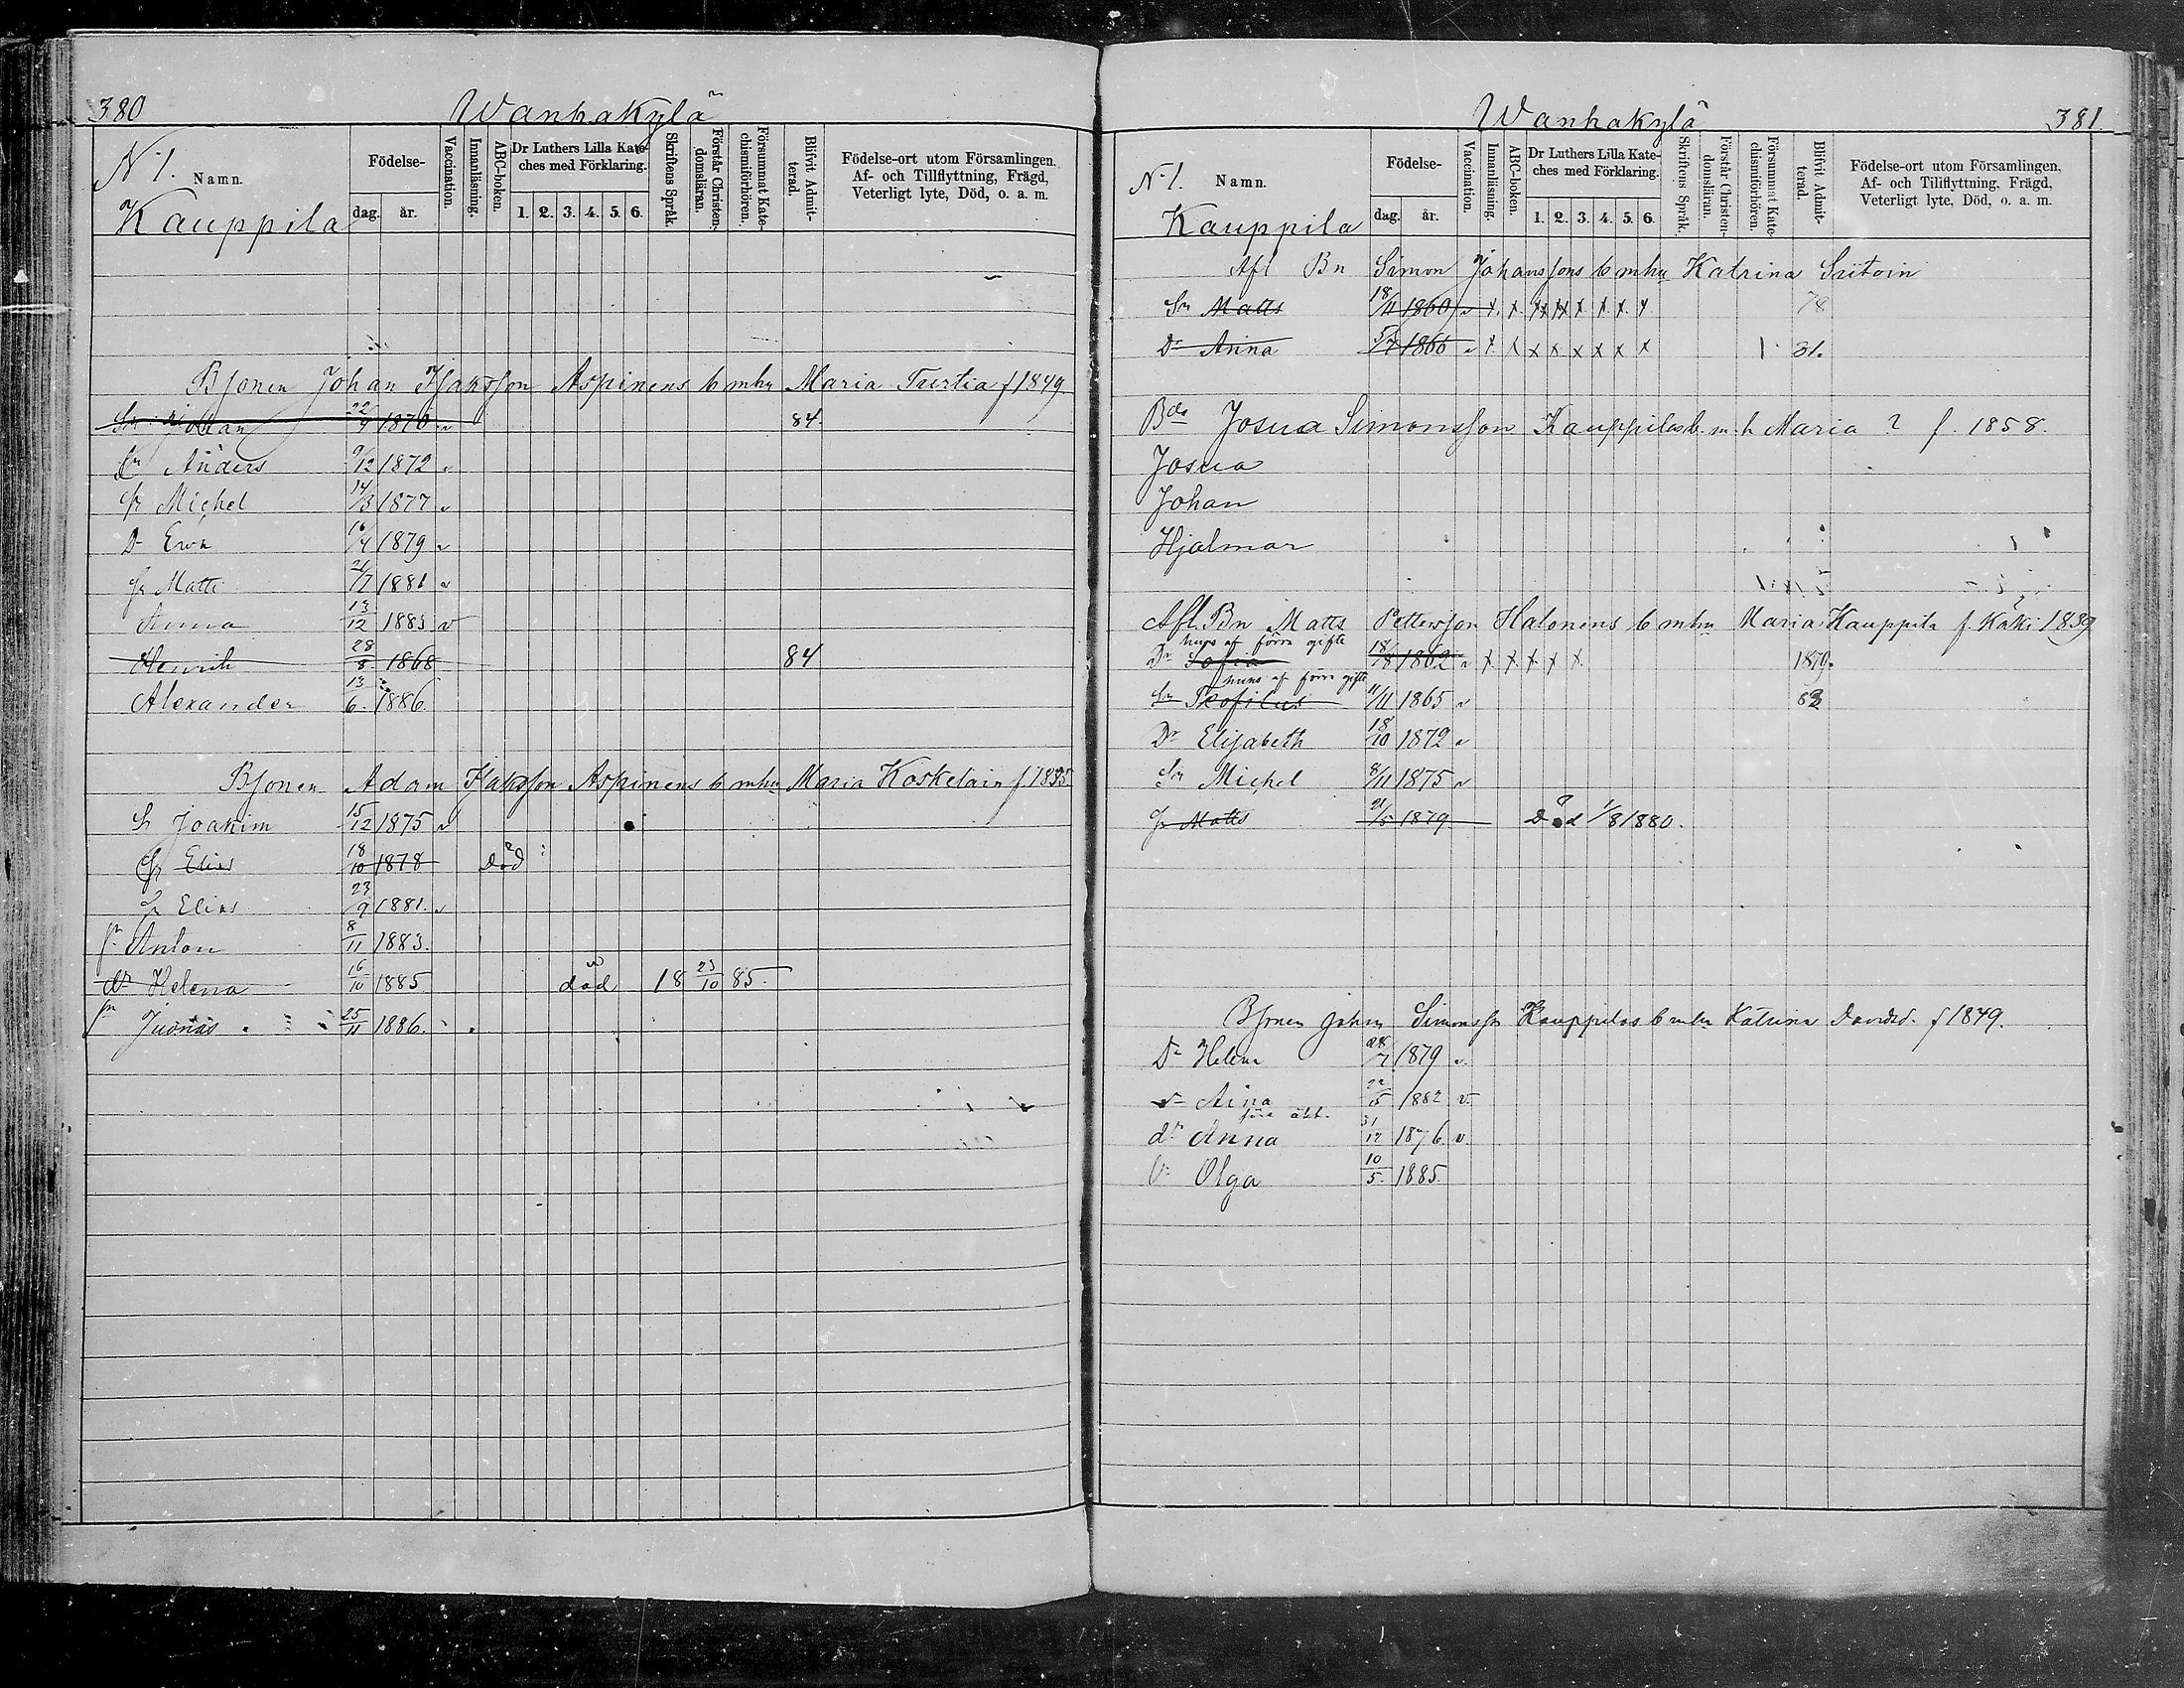 380 Wanhakylä
N 1. Namn. Födelse- dag. år. Vaccination. Innanläsning. ABC-boken. Dr Luthers Lilla Kateches med Förklaring. 1. 2. 3. 4. 5. 6. Skriftens Språk. Förstår Christendomsläran. Försummat Katechismiförhören. Blifvit Admitterad. Födelse-ort utom Församlingen, Af- och Tillflyttning, Frägd, Veterligt lyte, Död, o. a. m.
Kauppila
Bsonen Johan Isaksson Aspinens b mhu Maria Turtia f 1849.
Sn Johan 22/4 1870 v 84.
Sn Anders 9/12 1872 v
Sn Michel 14/3 1877 v
Dr Ewa 16/4 1879 v
Sn Matts 21/7 1881 v
Anna 13/12 1883 v
Henrik 28/5 1868 84
Alexander 13/6 1886.
Bsonen Adam Isaksson Aspinens b mhu Maria Koskelain f. 1855.
Sn Joakim 15/12 1875 v
Sn Elias 18/10 1878 död
Sn Elias 23/9 1881. v
sn Anton 8/11 1883.
dr Helena 16/10 1885. död 18 23/10 85.
sn Juonas 25/11 1886.
Wanhakylä 381.
N 1. Namn. Födelse- dag. år. Vaccination. Innanläsning. ABC-boken. Dr Luthers Lilla Kateches med Förklaring. 1. 2. 3. 4. 5. 6. Skriftens Språk. Förstår Christendomsläran. Försummat Katechismiförhören. Blifvit Admitterad. Födelse-ort utom Församlingen, Af- och Tillflyttning, Frägd, Veterligt lyte, Död, o. a. m.
Kauppila
Afl Bn Simon Johanssons b mhu Katrina
Sn Matts 18/11 1860 v x x xx xx x x x x 78
Dr Anna 5/7 1866 v x x x x x x x x 1 31.
Bde Josua Simonsson Kauppilas b. m. h Maria ? f. 1858.
Josua
Johan
Hjalmar
Afl. Bn Matts Pettersson Halonens b mhu Maria Kauppila f. Käki 1839
hens af förra gifte
Dr Sofia 18/8 1862 v x x x x x 1879.
hens af förra gifte
Sn Teofilus 11/11 1865 v 83
Dr Elisabeth 18/10 1872 v
Sn Michel 8/11 1875 v
Sn Matts 21/5 1879 Död 1/8 1880.
Bsonen Johan Simonsson Kauppilas b mhu Katrina Davidsd. f 1849.
Dr Helena 28/7 1879 v
Dr Aina 22/5 1882 v
före äkt.
dr Anna 31/12 1876. v.
Dr Olga 10/5. 1885.